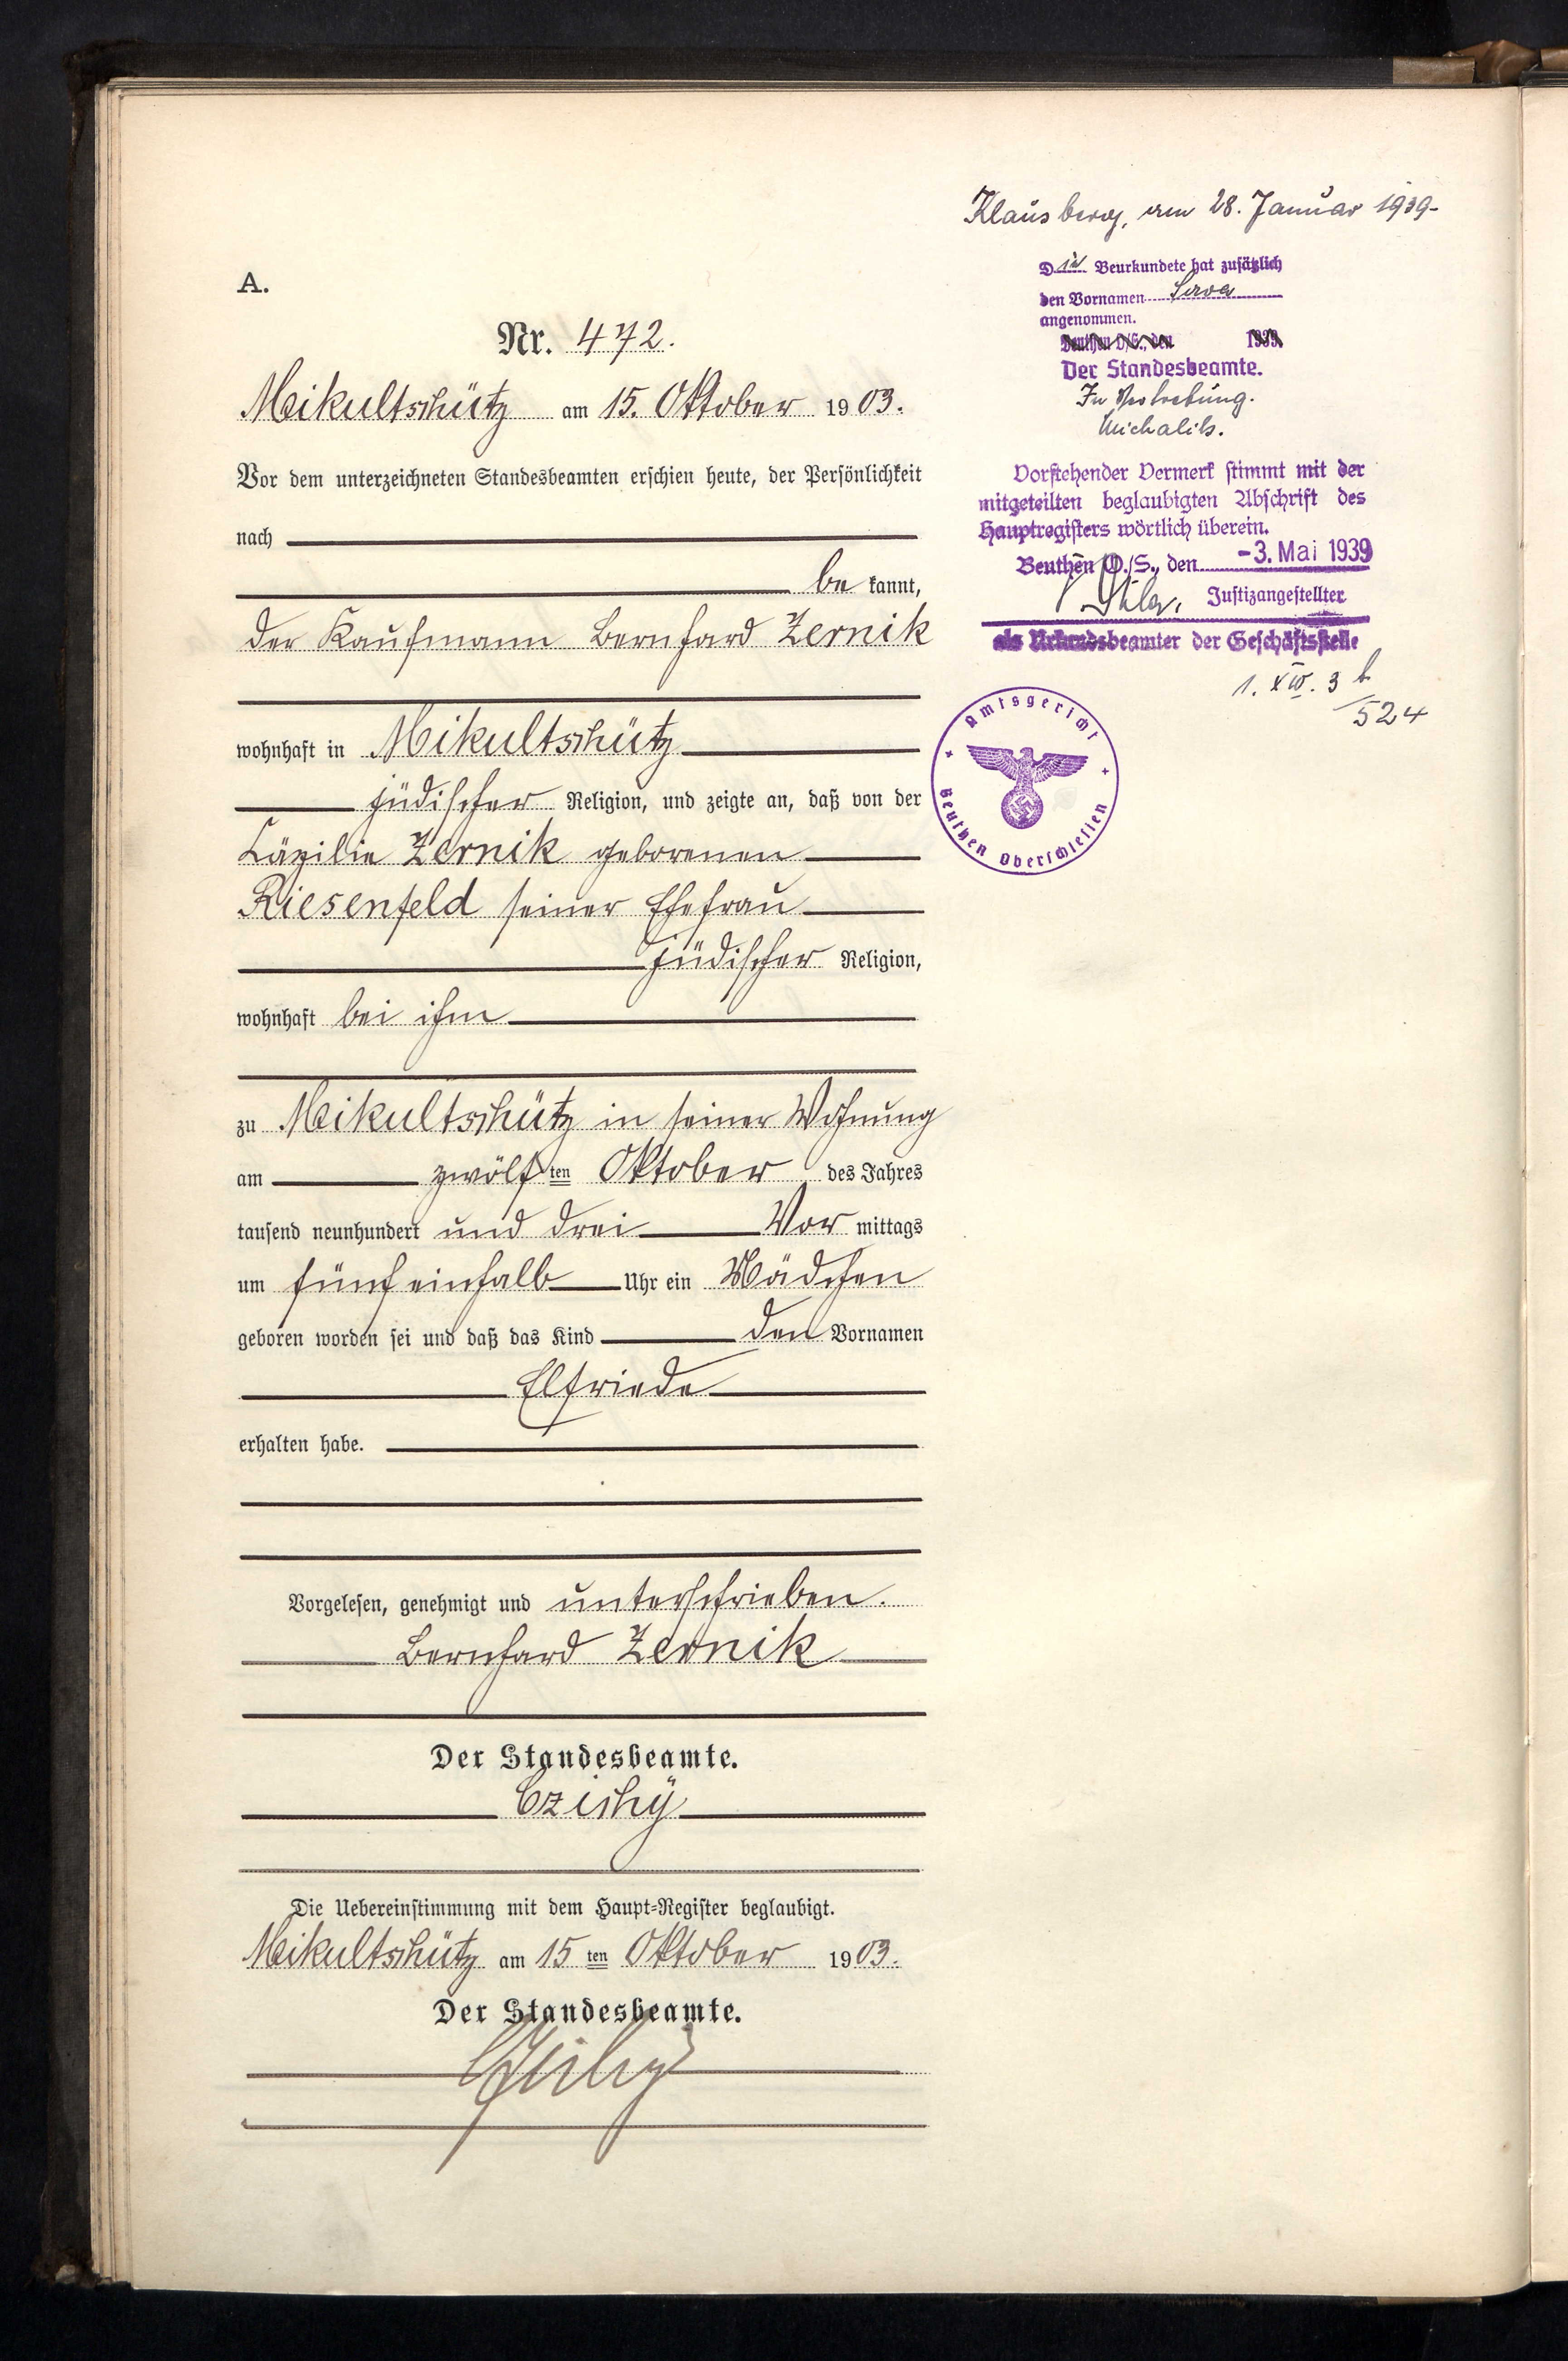 A.
Nr. 472.
Mikultschütz am 15. Oktober 1903.
Vor dem unterzeichneten Standesbeamten erschien heute, der Persönlichkeit
nach
be kannt,
der Kaufmann Bernhard Zernik
wohnhaft in Mikultschütz
jüdischer Religion, und zeigte an, daß von der
Cäzilie Zernik geborenen
Riesenfeld seiner Ehefrau
jüdischer Religion,
wohnhaft bei ihm
zu Mikultschütz in seiner Wohnung
am zwölf ten Oktober des Jahres
tausend neunhundert und drei Vor mittags
um fünf einhalb Uhr ein Mädchen
geboren worden sei und daß das Kind den Vornamen
Elfriede
erhalten habe.
Vorgelesen, genehmigt und unterschrieben.
Bernhard Zernik
Der Standesbeamte.
Die Uebereinstimmung mit dem Haupt-Register beglaubigt.
Mikultschütz am 15 ten Oktober 1903.
Der Standesbeamte.
Klausberg, am 28. Januar 1939-
Die Beurkundete hat zusätzlich
den Vornamen Sara
angenommen.
Beuthen O/S., den 1939.
Der Standesbeamte.
In Vertretung.
Michalik.
Vorstehender Vermerk stimmt mit der
mitgeteilten beglaubigten Abschrift des
Hauptregisters wörtlich überein.
Beuthen O./S., den -3. Mai 1939
Justizangestellter
als Urkundsbeamter der Geschäftsstelle
524
Amtsgericht
Beuthen Oberschlesien